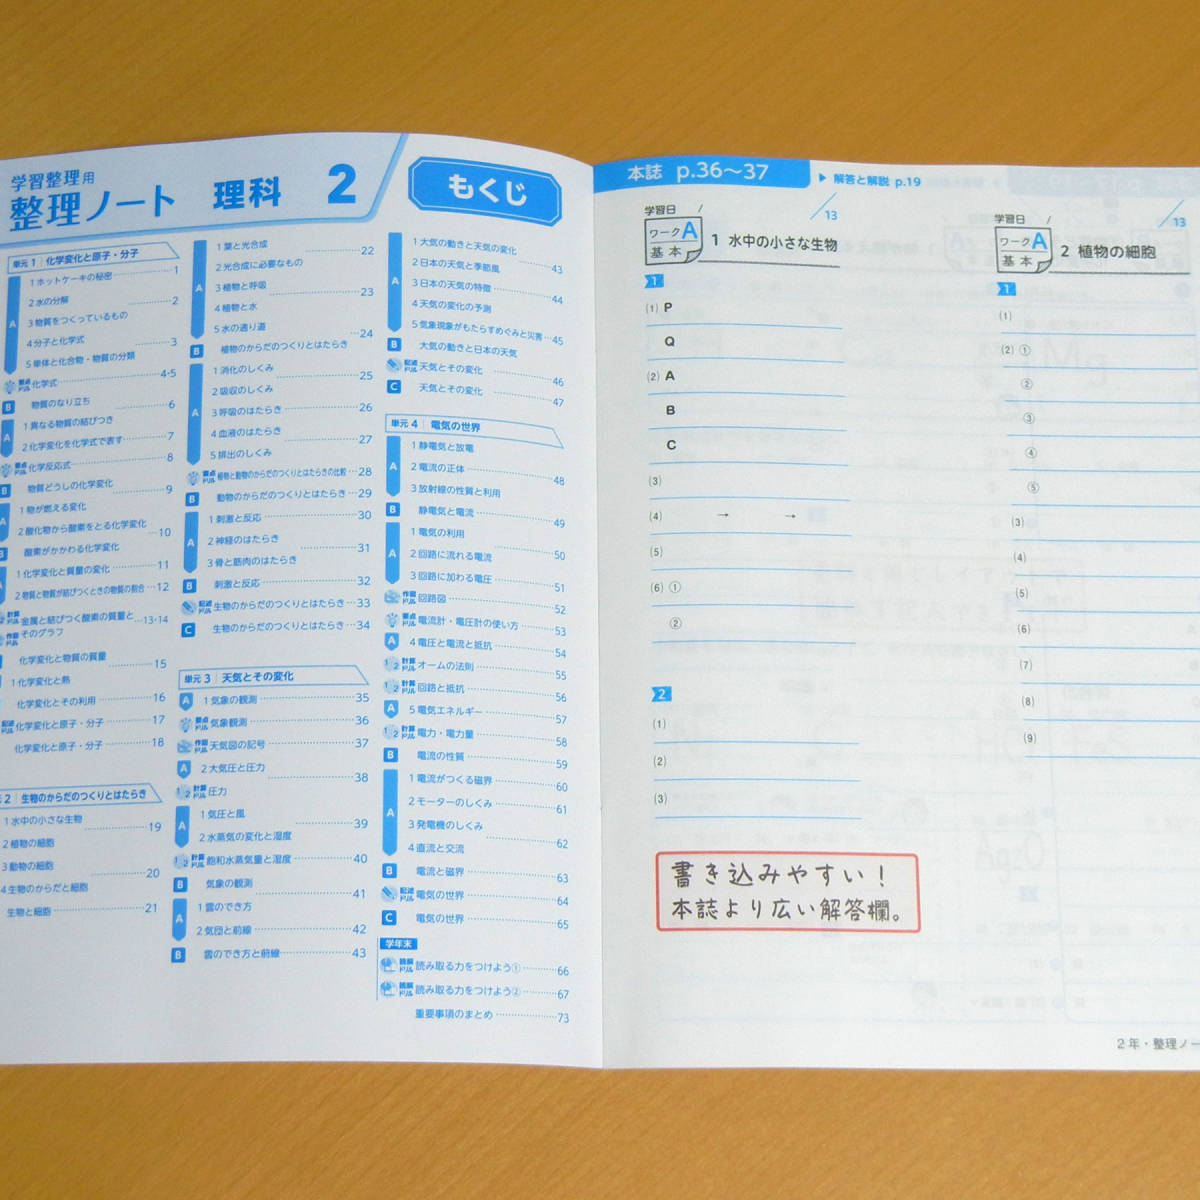 学習整理用
整理ノート 理科 2
もくじ
単元1 化学変化と原子・分子
1 ホットケーキの秘密 1
2 水の分解 2
3 物質をつくっているもの
4 分子と化学式 3
5 単体と化合物・物質の分類
A
要点ドリル 化学式 4・5
B 物質のなり立ち 6
A
1 異なる物質の結びつき
2 化学変化を化学式で表す 7
要点ドリル 化学反応式 8
B 物質どうしの化学変化 9
A
1 物が燃える変化
2 酸化物から酸素をとる化学変化 10
B 酸素がかかわる化学変化
A
1 化学変化と質量の変化 11
2 物質と物質が結びつくときの物質の割合 12
計算ドリル 作図ドリル 金属と結びつく酸素の質量とそのグラフ 13・14
化学変化と物質の質量 15
1 化学変化と熱
化学変化とその利用 16
記述ドリル 化学変化と原子・分子 17
化学変化と原子・分子 18
元2 生物のからだのつくりとはたらき
1 水中の小さな生物 19
2 植物の細胞
3 動物の細胞 20
4 生物のからだと細胞
生物と細胞 21
A
1 葉と光合成 22
2 光合成に必要なもの
3 植物と呼吸 23
4 植物と水
5 水の通り道 24
B 植物のからだのつくりとはたらき
A
1 消化のしくみ 25
2 吸収のしくみ
3 呼吸のはたらき 26
4 血液のはたらき 27
5 排出のしくみ
要点ドリル 植物と動物のからだのつくりとはたらきの比較 28
B 動物のからだのつくりとはたらき 29
A
1 刺激と反応 30
2 神経のはたらき 31
3 骨と筋肉のはたらき
B 刺激と反応 32
記述ドリル 生物のからだのつくりとはたらき 33
C 生物のからだのつくりとはたらき 34
単元3 天気とその変化
A 1 気象の観測 35
要点ドリル 気象観測 36
作図ドリル 天気図の記号 37
A 2 大気圧と圧力 38
計算ドリル 圧力
A
1 気圧と風 39
2 水蒸気の変化と湿度
計算ドリル 飽和水蒸気量と湿度 40
B 気象の観測 41
A
1 雲のでき方
2 気団と前線 42
B 雲のでき方と前線 43
A
1 大気の動きと天気の変化 43
2 日本の天気と季節風
3 日本の天気の特徴 44
4 天気の変化の予測
5 気象現象がもたらすめぐみと災害 45
B 大気の動きと日本の天気
記述ドリル 天気とその変化 46
C 天気とその変化 47
単元4 電気の世界
A
1 静電気と放電
2 電流の正体 48
3 放射線の性質と利用
B 静電気と電流 49
A
1 電気の利用 50
2 回路に流れる電流
3 回路に加わる電圧 51
作図ドリル 回路図 52
要点ドリル 電流計・電圧計の使い方 53
A 4 電圧と電流と抵抗 54
計算ドリル オームの法則 55
計算ドリル 回路と抵抗 56
A 5 電気エネルギー 57
計算ドリル 電力・電力量 58
B 電流の性質 59
A
1 電流がつくる磁界 60
2 モーターのしくみ 61
3 発電機のしくみ 62
4 直流と交流
B 電流と磁界 63
記述ドリル 電気の世界 64
C 電気の世界 65
学年末
読解ドリル 読み取る力をつけよう① 66
読解ドリル 読み取る力をつけよう② 67
重要事項のまとめ 73
本誌 p.36〜37
▶ 解答と解説 p.19
学習日 /
/13
ワークA 基本 1 水中の小さな生物
1
(1) P
Q
(2) A
B
C
(3)
(4) → →
(5)
(6) ①
②
2
(1)
(2)
(3)
学習日 /
/13
ワークA 基本 2 植物の細胞
1
(1)
(2) ①
②
③
④
⑤
(3)
(4)
(5)
(6)
(7)
(8)
(9)
書き込みやすい！
本誌より広い解答欄。
2年・整理ノー